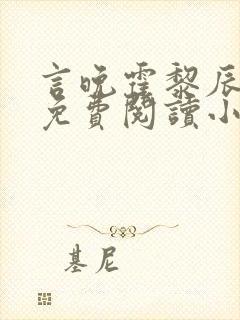 言晚霏黎辰
免費閱讀小
基尼